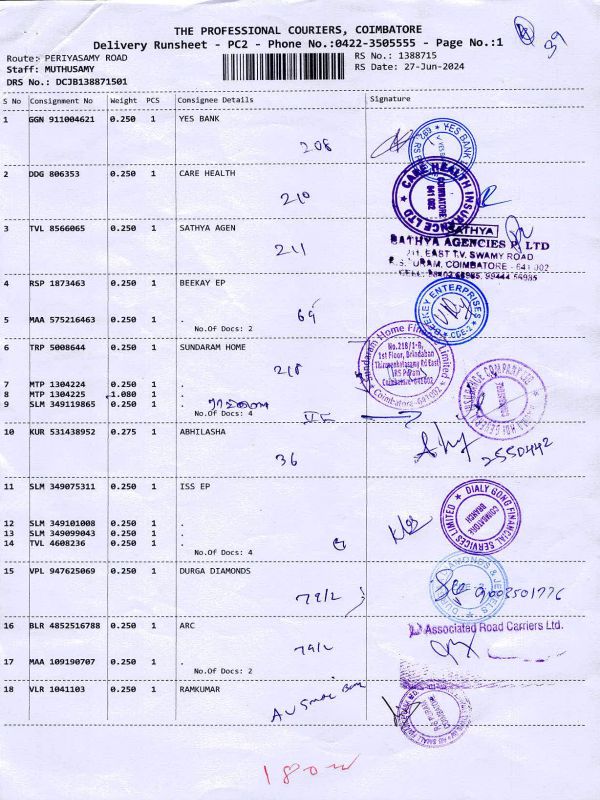 THE PROFESSIONAL COURIERS, COIMBATORE
Delivery Runsheet - PC2 - Phone No.:0422-3505555 - Page No.:1
39
Route: PERIYASAMY ROAD
RS No.: 1388715
Staff: MUTHUSAMY
RS Date: 27-Jun-2024
DRS No.: DCJB138871501
S No Consignment No Weight PCS Consignee Details Signature
1 GGN 911004621 0.250 1 YES BANK
208
YES BANK
2 DDG 806353 0.250 1 CARE HEALTH
210
CARE HEALTH INSURANCE LTD
COIMBATORE
641 002
3 TVL 8566065 0.250 1 SATHYA AGEN
211
SATHYA
SATHYA AGENCIES P. LTD
211, EAST T.V. SWAMY ROAD
COIMBATORE - 641 002
4 RSP 1873463 0.250 1 BEEKAY EP
69
BEEKEY ENTERPRISES
CBE-2
5 MAA 575216463 0.250 1 .
No.Of Docs: 2
6 TRP 5008644 0.250 1 SUNDARAM HOME
218
Sundaram Home Finance Limited
No.218/1-B,
1st Floor, Brindaban
Coimbatore-641002
7 MTP 1304224 0.250 1 .
8 MTP 1304225 1.080 1 .
9 SLM 349119865 0.250 1 .
No.Of Docs: 4
10 KUR 531438952 0.275 1 ABHILASHA
36
2550442
11 SLM 349075311 0.250 1 ISS EP
DIALY GONG FINANCIAL SERVICES LIMITED
COIMBATORE
BRANCH
12 SLM 349101008 0.250 1 .
13 SLM 349099043 0.250 1 .
14 TVL 4608236 0.250 1 .
No.Of Docs: 4
15 VPL 947625069 0.250 1 DURGA DIAMONDS
79/2
16 BLR 4852516788 0.250 1 ARC
79/2
Associated Road Carriers Ltd.
17 MAA 109190707 0.250 1 .
No.Of Docs: 2
18 VLR 1041103 0.250 1 RAMKUMAR